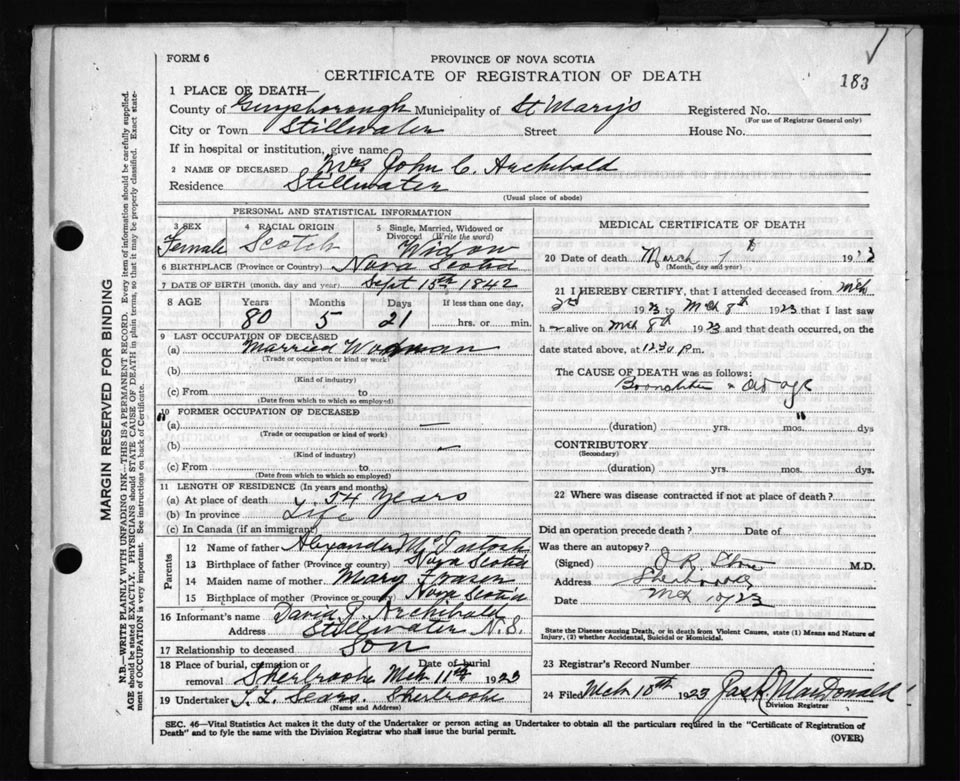 183
FORM 6
PROVINCE OF NOVA SCOTIA
CERTIFICATE OF REGISTRATION OF DEATH
1 PLACE OF DEATH—
County of Guysborough Municipality of St Mary's Registered No.
(For use of Registrar General only)
City or Town Stillwater Street House No.
If in hospital or institution, give name
2 NAME OF DECEASED Mrs John C. Archibald
Residence Stillwater
(Usual place of abode)
PERSONAL AND STATISTICAL INFORMATION
3 SEX Female
4 RACIAL ORIGIN Scotch
5 Single, Married, Widowed or Divorced (Write the word) Widow
6 BIRTHPLACE (Province or Country) Nova Scotia
7 DATE OF BIRTH (month, day and year) Sept 15th 1842
8 AGE Years Months Days If less than one day,
80 5 21 hrs. or min.
9 LAST OCCUPATION OF DECEASED
(a) Married Woman
(Trade or occupation or kind or work)
(b)
(Kind of industry)
(c) From to
(Date from which to which so employed)
10 FORMER OCCUPATION OF DECEASED
(a) —
(Trade or occupation or kind of work)
(b)
(Kind of industry)
(c) From to
(Date from which to which so employed)
11 LENGTH OF RESIDENCE (In years and months)
(a) At place of death 54 Years
(b) In province Life
(c) In Canada (if an immigrant)
Parents
12 Name of father Alexander
13 Birthplace of father (Province or country) Nova Scotia
14 Maiden name of mother Mary Fraser
15 Birthplace of mother (Province or Country) Nova Scotia
16 Informant's name David Archibald
Address Stillwater N.S.
17 Relationship to deceased Son
18 Place of burial, cremation or removal Sherbrooke Date of burial Mch 11th 1923
19 Undertaker Sears. Sherbrooke
(Name and Address)
MEDICAL CERTIFICATE OF DEATH
20 Date of death March 19
(Month, day and year)
21 I HEREBY CERTIFY, that I attended deceased from Mch
1923 to Mch 8th 1923 that I last saw
h alive on Mch 8th 1923 and that death occurred, on the
date stated above, at 12.30 p.m.
The CAUSE OF DEATH was as follows:
& Old age
(duration) yrs. mos. dys
CONTRIBUTORY
(Secondary)
(duration) yrs. mos. dys.
22 Where was disease contracted if not at place of death?
Did an operation precede death? Date of
Was there an autopsy?
(Signed) M.D.
Address Sherbrooke
Date Mch 10/23
State the Disease causing Death, or in death from Violent Causes, state (1) Means and Nature of
Injury, (2) whether Accidental, Suicidal or Homicidal.
23 Registrar's Record Number
24 Filed Mch 10th 1923 MacDonald
Division Registrar
SEC. 46—Vital Statistics Act makes it the duty of the Undertaker or person acting as Undertaker to obtain all the particulars required in the "Certificate of Registration of
Death" and to fyle the same with the Division Registrar who shall issue the burial permit.
(OVER)
MARGIN RESERVED FOR BINDING
N.B.—WRITE PLAINLY WITH UNFADING INK—THIS IS A PERMANENT RECORD. Every item of information should be carefully supplied.
AGE should be stated EXACTLY. PHYSICIANS should STATE CAUSE OF DEATH in plain terms, so that it may be properly classified. Exact state-
ment of OCCUPATION is very important. See instructions on back of Certificate.